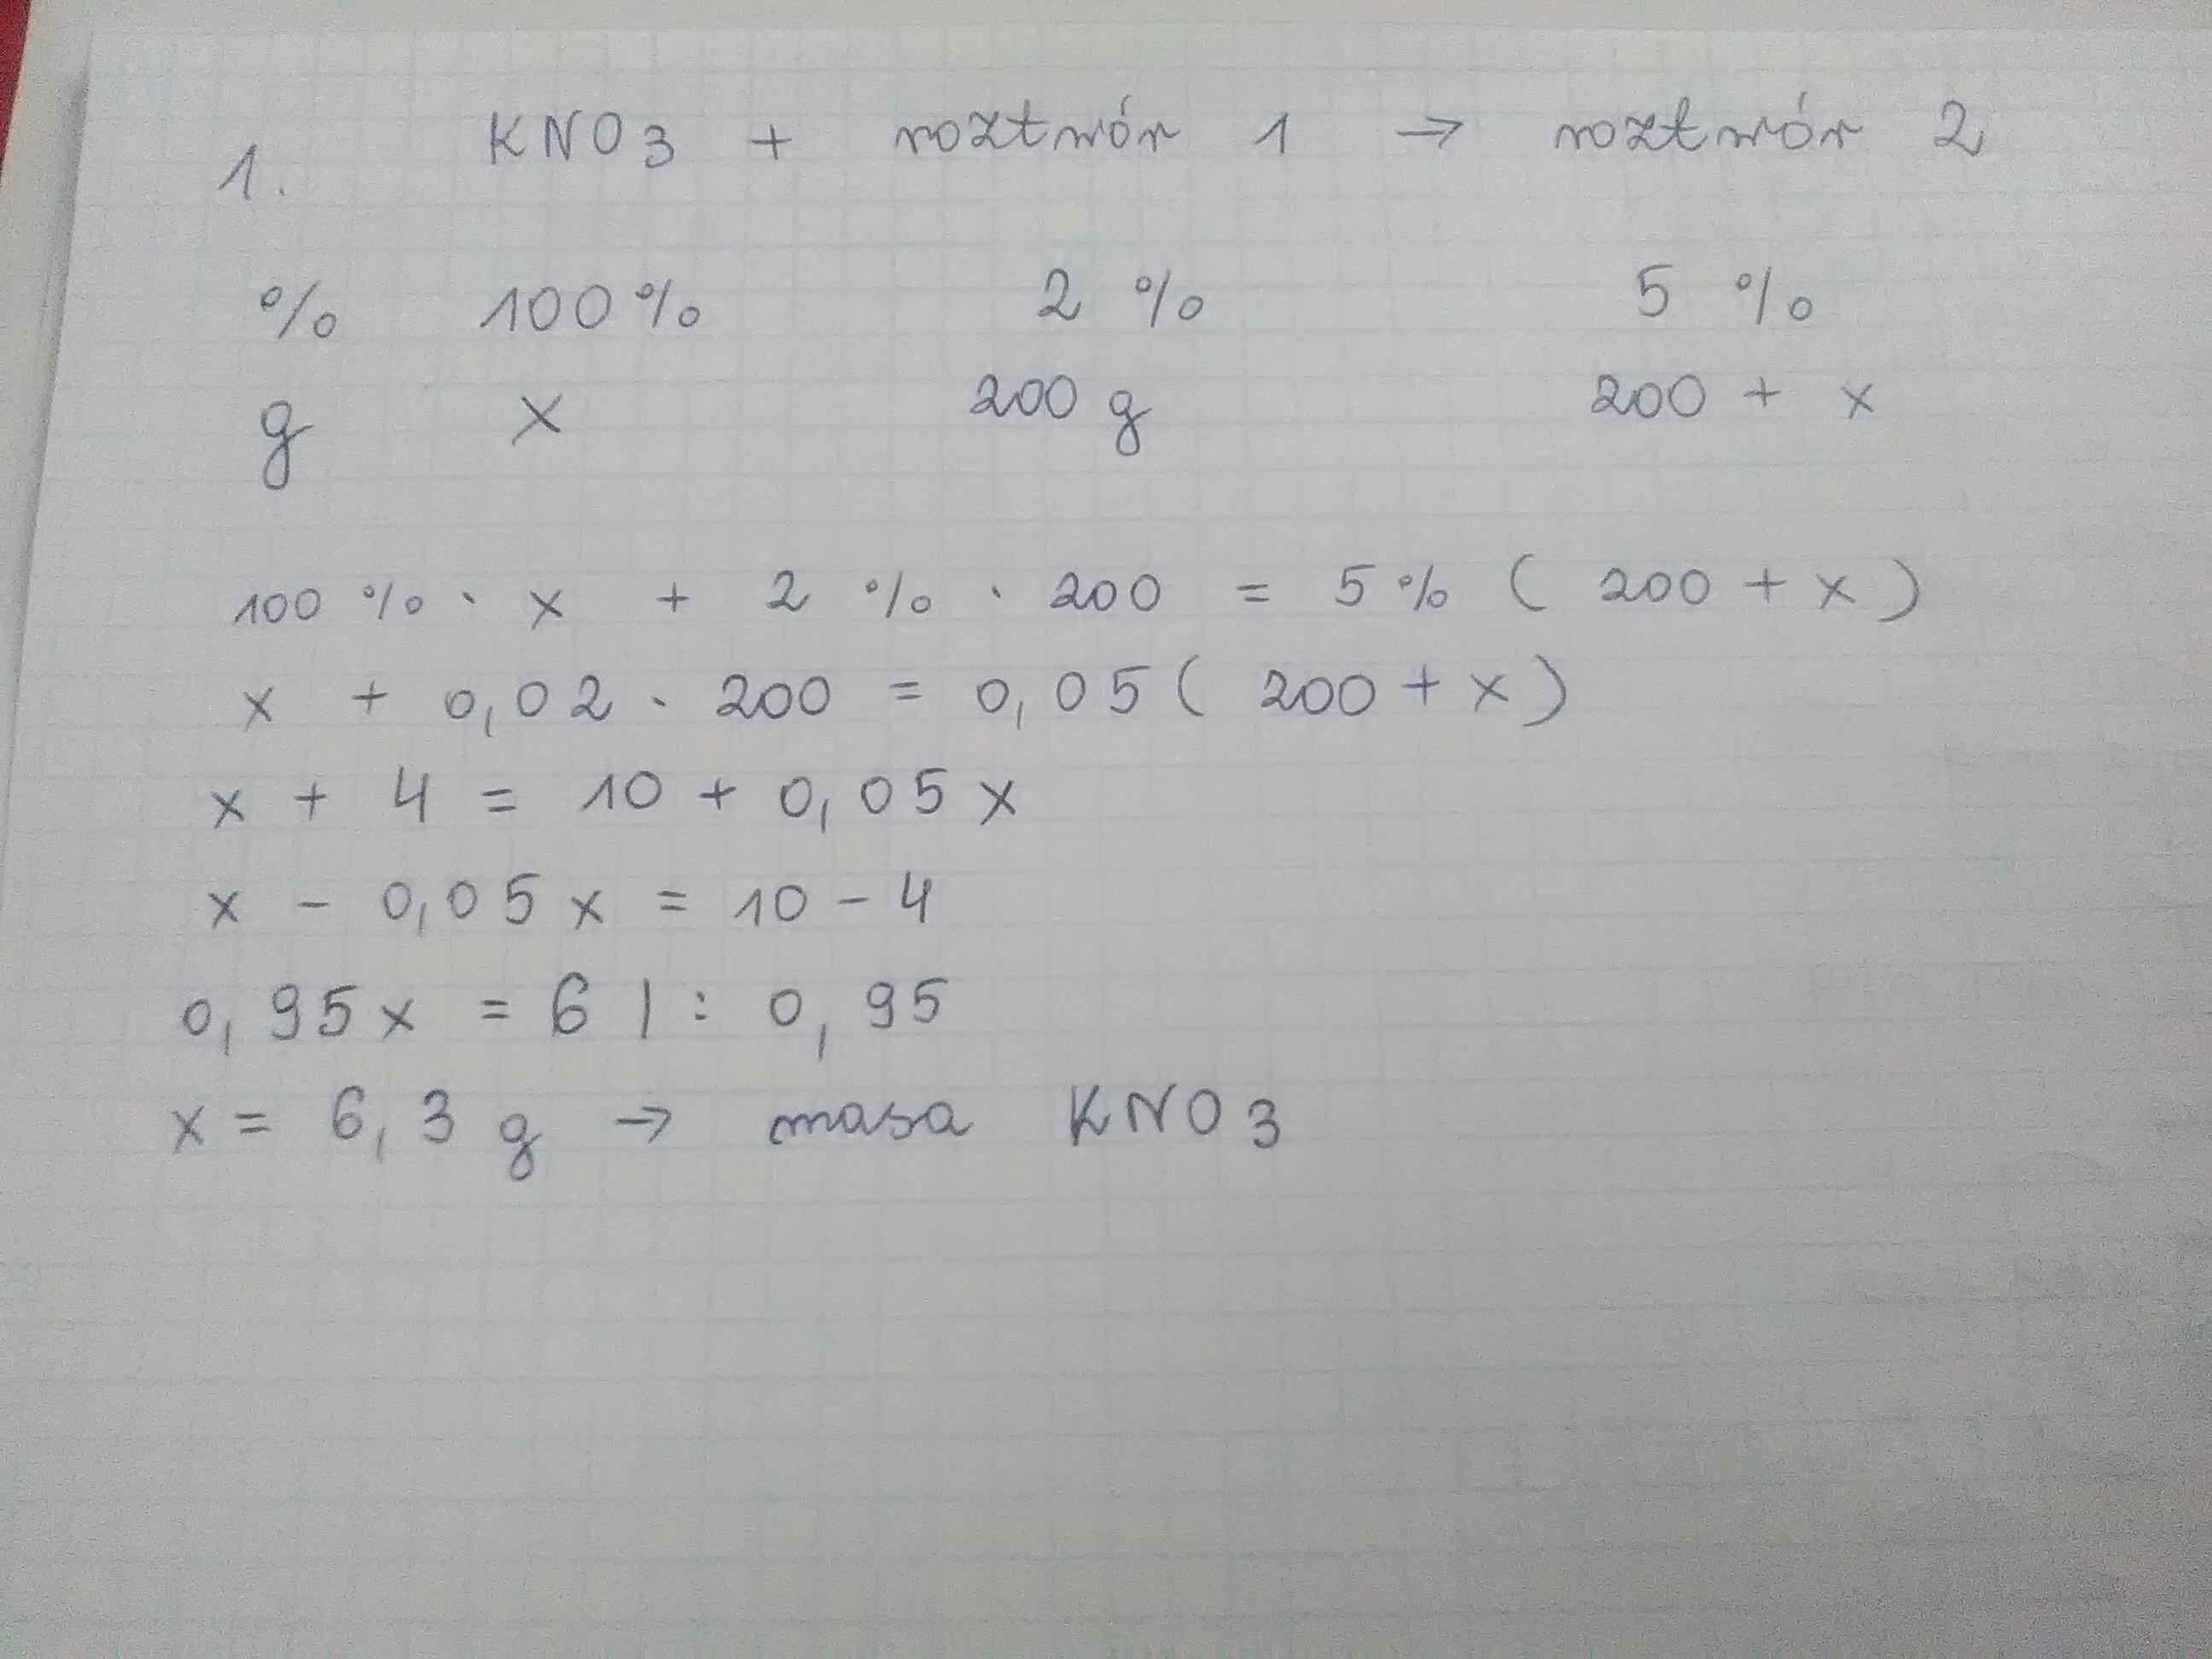 1. KNO3 + roztwór 1 → roztwór 2
% 100% 2 % 5 %
g x 200 g 200 + x
100 % · x + 2 % · 200 = 5% ( 200 + x )
x + 0,02 · 200 = 0,05 ( 200 + x )
x + 4 = 10 + 0,05 x
x - 0,05 x = 10 - 4
0,95 x = 6 | : 0,95
x = 6,3 g → masa KNO3